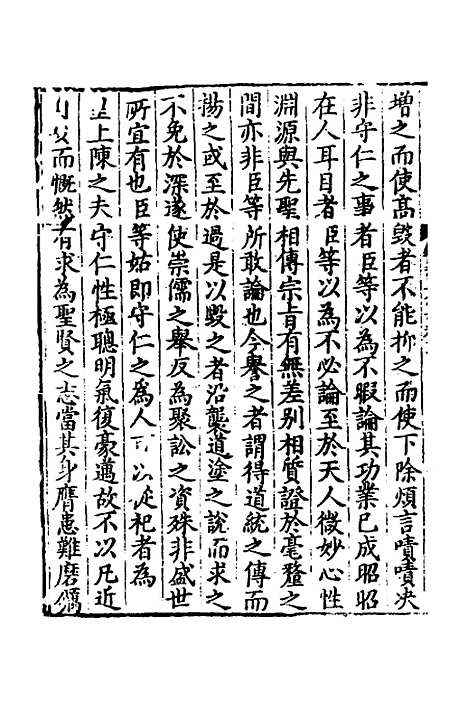 增之而使高毀者不能抑之而使下除煩言嘖嘖决
非守仁之事者臣等以為不暇論其功業已成昭昭
在人耳目者臣等以為不必論至於天人微妙心性
淵源與先聖相傳宗旨有無差别相質證於毫釐之
間亦非臣等所敢論也今譽之者謂得道統之傳而
揚之或至於過是以毀之者沿襲道塗之說而求之
不免於深遂使崇儒之舉反為聚訟之資殊非盛世
所宜有也臣等姑即守仁之為人可以從祀者為
上陳之夫守仁性極聰明氣復豪邁故不以凡近
而慨然有求為聖賢之志當其身膺患難磨礪